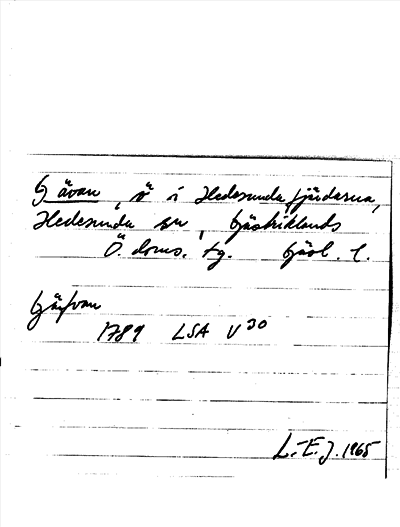 Gävan, ö i Hedesundafjärdarna,
Hedesunda sn, Gästriklands
Ö. doms. tg. Gävl. l.
Gäfvan
1789 LSA V 30
L.-E. J. 1965